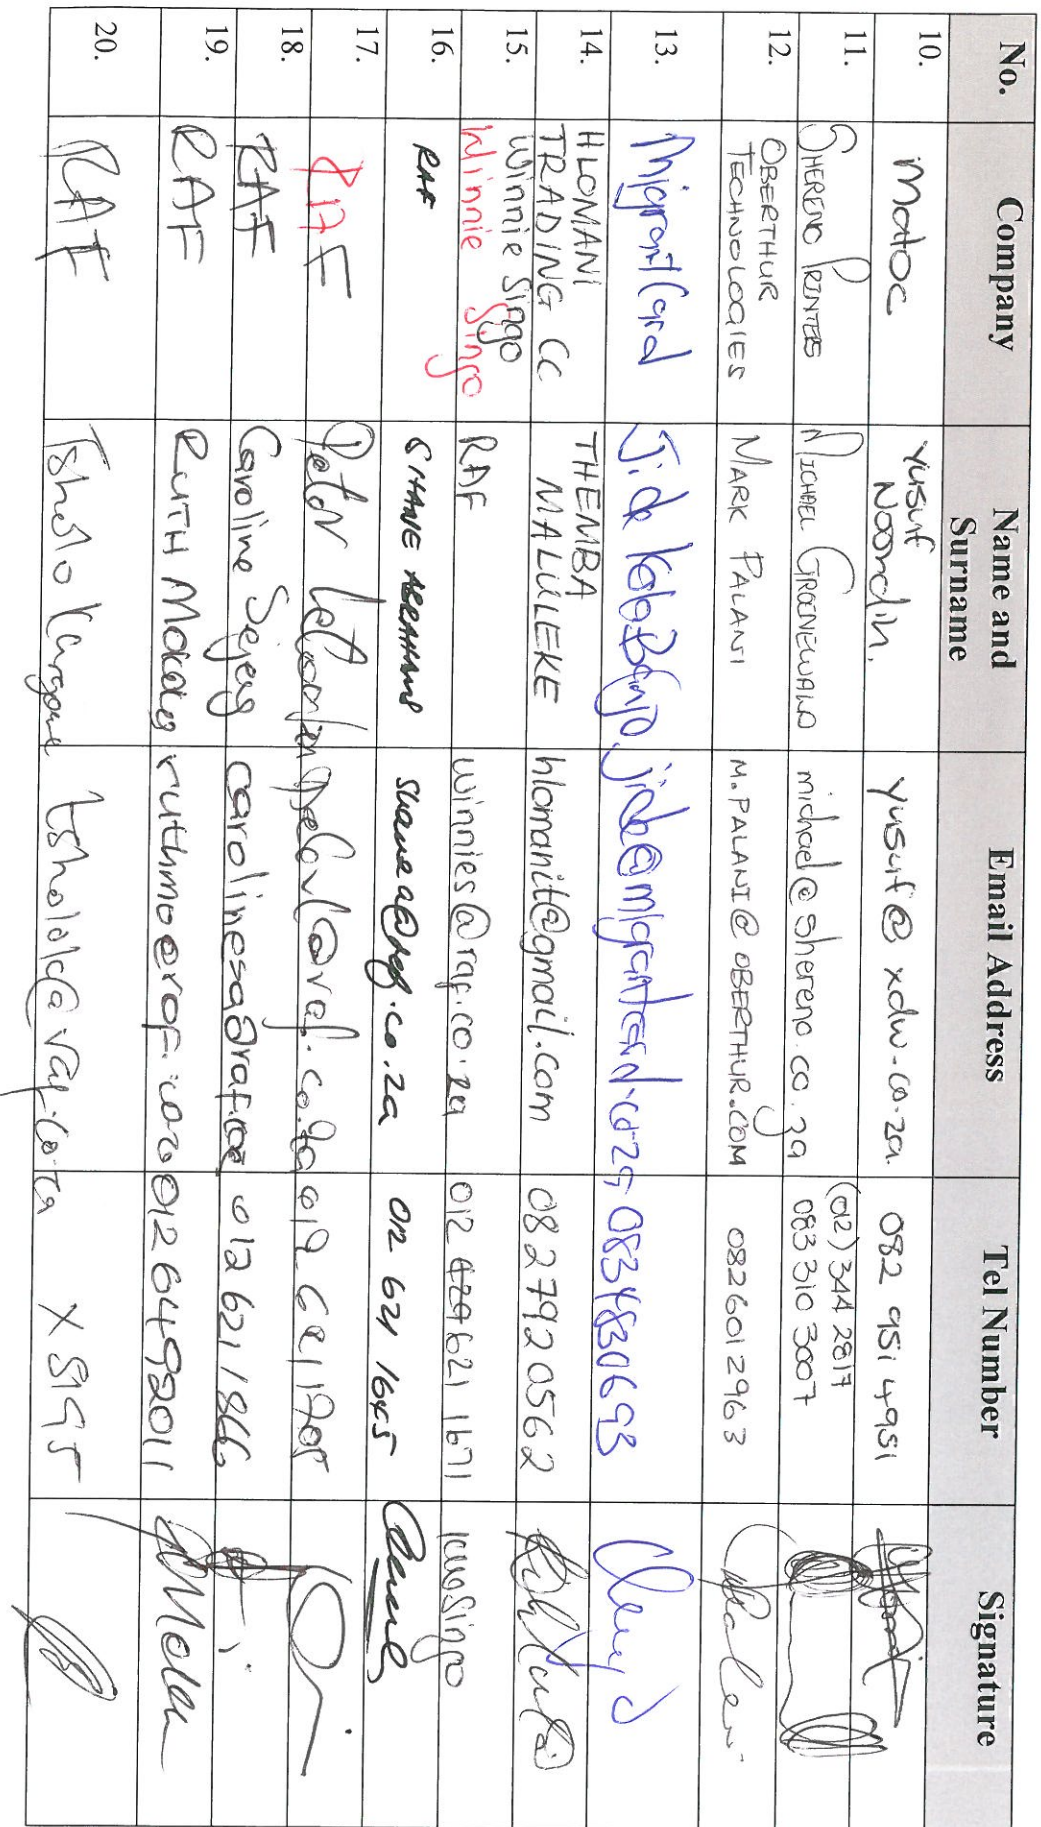 No. Company Name and Surname Email Address Tel Number Signature
10. Matoc Yusuf Noordin. yusuf@xdw.co.za. 082 951 4951
11. SHERENO PRINTERS MICHAEL GROENEWALD michael@shereno.co.za (012) 344 2817
083 310 3007
12. OBERTHUR TECHNOLOGIES MARK PALANI M.PALANI@OBERTHUR.COM 0826012963
13. Migrant Card jide@migrantcard.co.za 0834830693
14. HLOMANI TRADING CC THEMBA MALULEKE hlomanit@gmail.com 0827920562
15. Winnie Singo
Winnie Singo RAF winnies@raf.co.za 012 429 621 1671
16. RAF SHANE ABRAHAMS shanea@raf.co.za 012 621 1645
17. RAF Peter
18. RAF Caroline carolinesa@raf.co 012 621 1866
19. RAF RUTH 012 6492011
20. RAF Tsholo X 5195